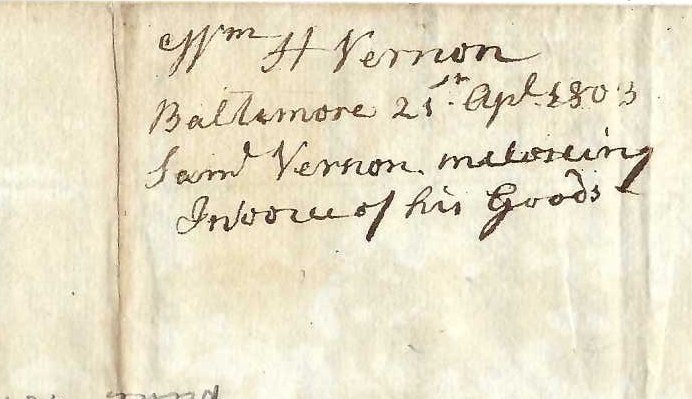 Wm H Vernon
Baltimore 21st. Apl. 1803
Saml Vernon. inclosing
Invoice of his Goods